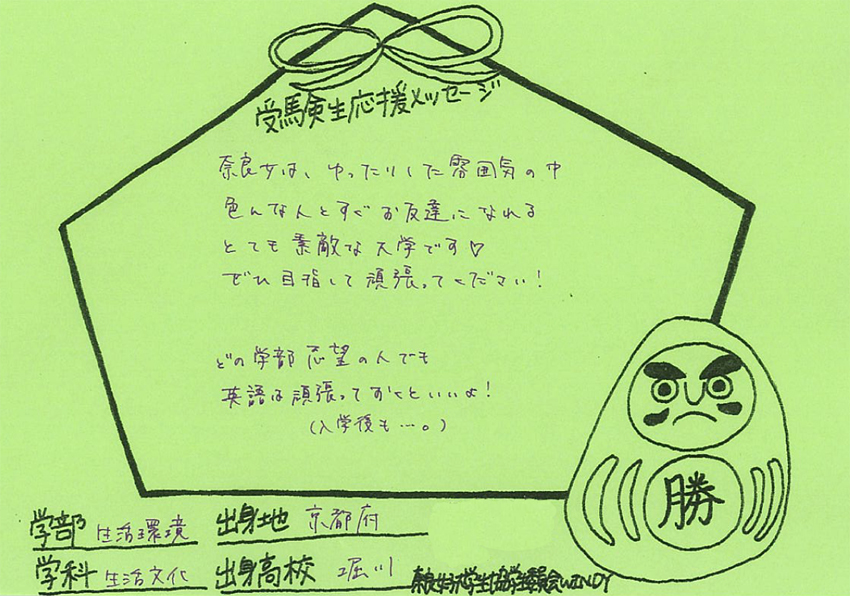 受験生応援メッセージ
奈良女は、ゆったりした雰囲気の中
色んな人とすぐお友達になれる
とても素敵な大学です♡
ぜひ目指して頑張ってください!
どの学部志望の人でも
英語は頑張っておくといいよ!
(入学後も…。)
勝
学部 生活環境 出身地 京都府
学科 生活文化 出身高校 堀川
奈良女子大学生協学生委員会WINDY